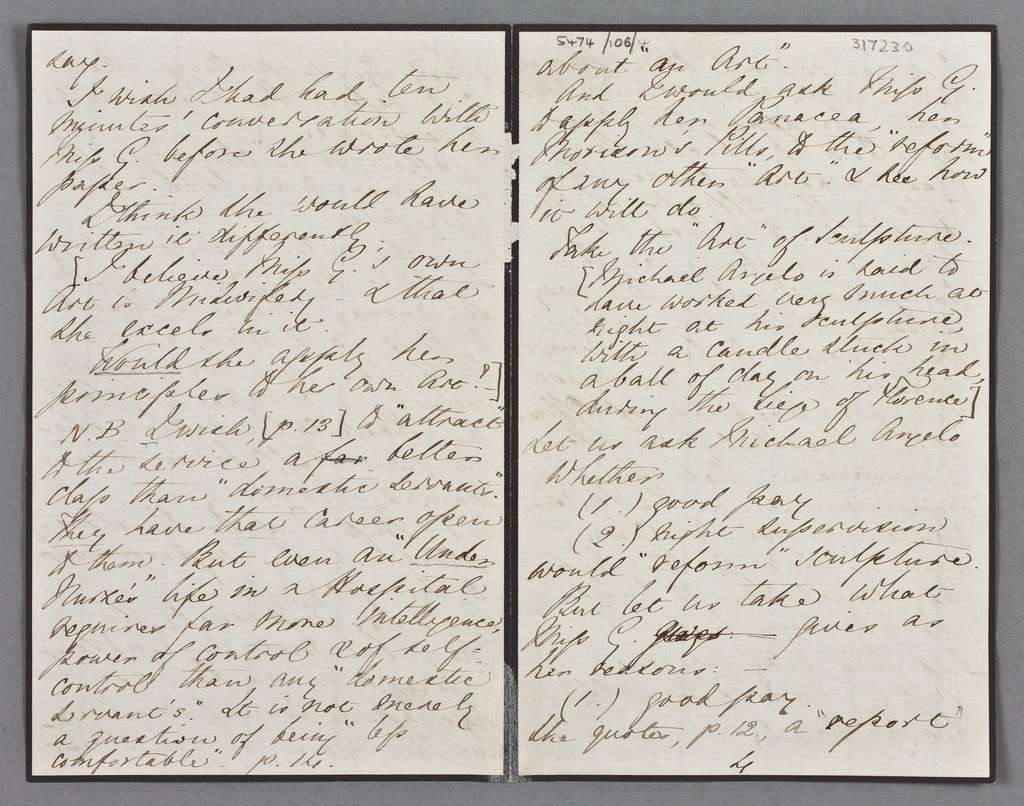 say.
I wish I had had ten
minutes' conversation with
Miss G. before she wrote her
paper.
I think she would have
written it differently.
[I believe Miss G.'s own
Art is Midwifery - & that
she excels in it.
Would she apply her
principles to her own Art?-]
N.B. I wish, [p. 13] to "attract"
to the service a far better
class than "domestic servants".
They have that career open
to them. But even an "Under
Nurse's" life in a Hospital
requires far more intelligence,
power of control & of self-
control than any "domestic
servant's". It is not merely
a question of being "less
comfortable" p. 14.
5474/106/4
317230
about "an Art".
And I would ask Miss G.
to apply her Panacea, her
Morison's Pills, to the "reform"
of any other "Art". & see how
it will do.
Take the "Art" of Sculpture.
[Michael Angelo is said to
have worked very much at
night at his sculpture,
with a candle stuck in
a ball of clay on his head,
during the siege of Florence]
Let us ask Michael Angelo
whether
(1.) good pay
(2.) night supervision
would "reform" Sculpture.
But let us take what
Miss G. gives as
her reasons: -
(1.) good pay.
She quotes, p. 12, a "report"
4